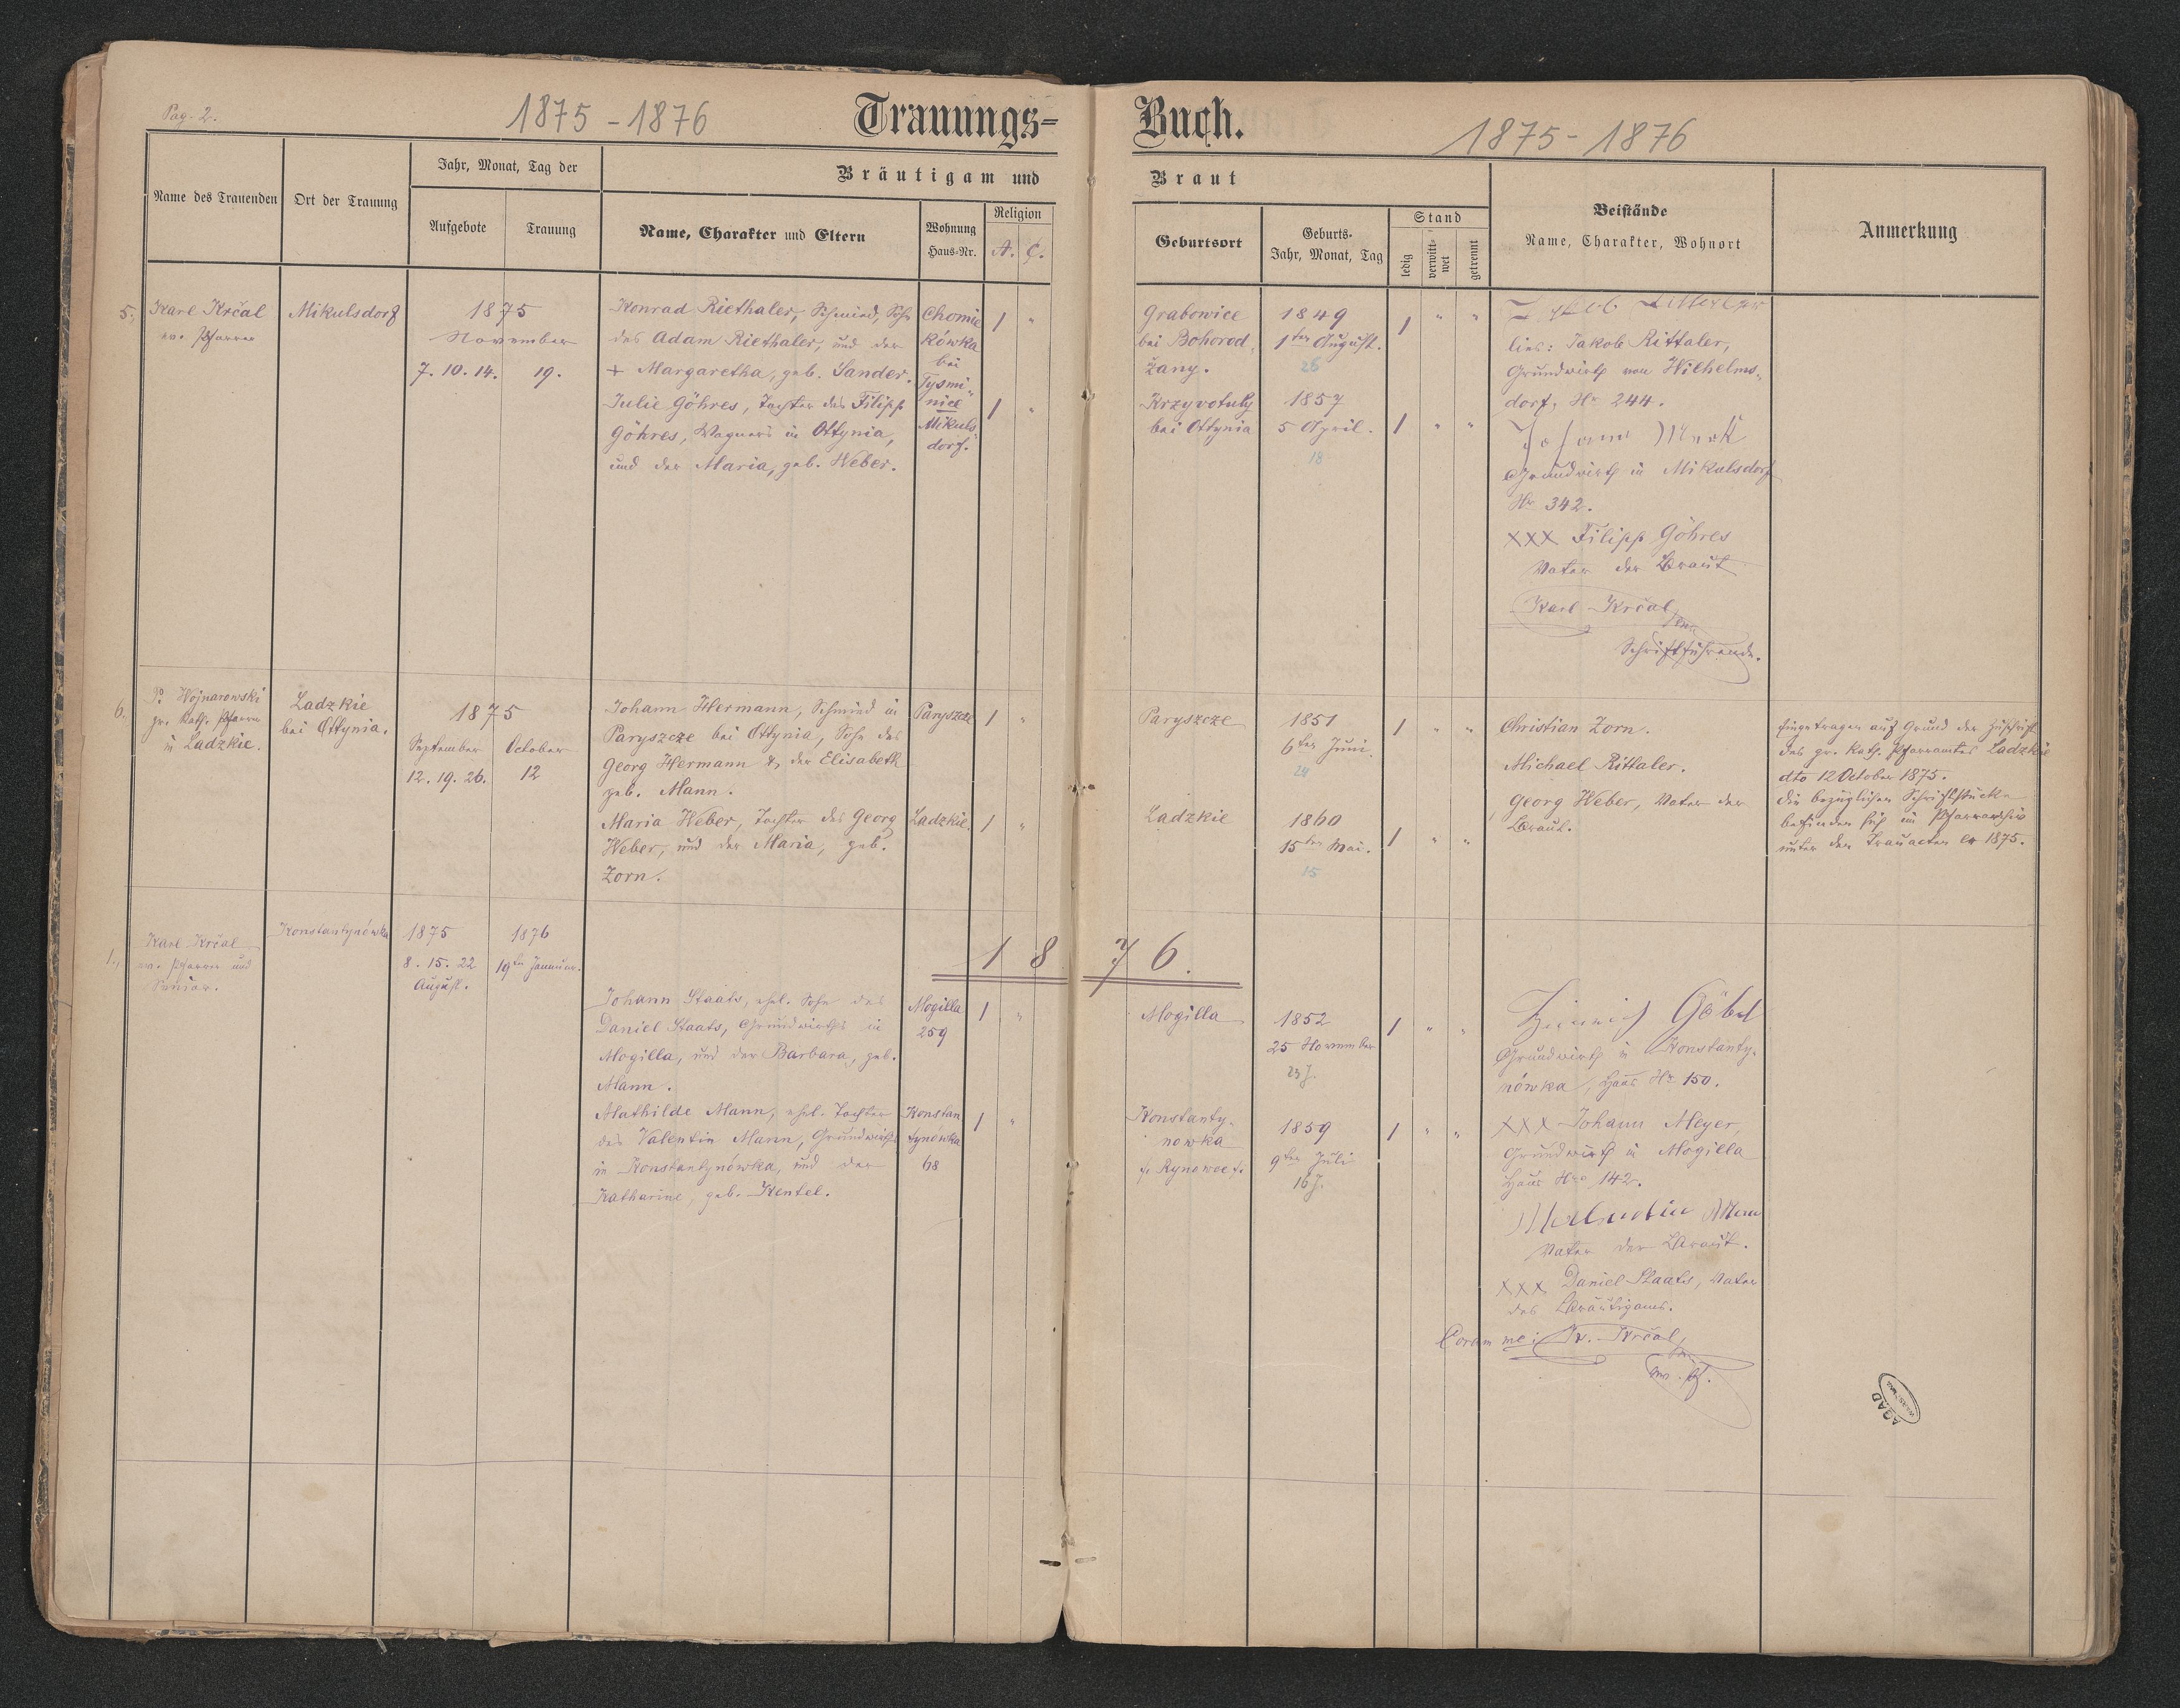 Pag. 2.
1875 - 1876
Trauungs-
Buch.
1875 - 1876
Name des Trauenden
Ort der Trauung
Jahr, Monat, Tag der
Aufgebote
Trauung
Bräutigam und
Name, Charakter und Eltern
Wohnung
Haus-Nr.
Religion
A.
C.
Braut
Geburtsort
Geburts-
Jahr, Monat, Tag
Stand
ledig
verwitt-
wet
getrennt
Beistände
Name, Charakter, Wohnort
Anmerkung
5.
Karl Krčal
ev. Pfarrer
Mikulsdorf
1875
November
7. 10. 14.
19.
Konrad Riethaler, Schmied, Sohn
des Adam Riethaler, und der
+ Margaretha, geb. Sander.
Julie Göhres, Tochter des Filipp
Göhres, Wagners in Ottynia,
und der Maria, geb. Weber.
Chomia
kówka
bei
Tysmi-
nice
Mikuls-
dorf.
1 "
1 "
Grabowice
bei Bohorod-
žany.
Krzyvotuly
bei Ottynia
1849
1ter August.
26
1857
5 April.
18
1 " "
1 " "
lies: Jakob Rittaler,
Grundwirth von Wilhelms-
dorf, Nr 244.
Johann
Grundwirth in Mikulsdorf
Nr 342.
XXX Filipp Göhres
Vater der Braut
Karl Krčal
Schriftführende.
6.
P. Wojnarowski
gr. kath. Pfarrer
in Ladzkie.
Ladzkie
bei Ottynia.
1875
September
October
12. 19. 26.
12
Johann Hermann, Schmied in
Paryszcze bei Ottynia, Sohn des
Georg Hermann & der Elisabeth
geb. Mann.
Maria Weber, Tochter des Georg
Weber, und der Maria, geb.
Zorn.
Paryszcze
Ladzkie.
1 "
1 "
Paryszcze
Ladzkie
1851
6ter Juni.
24
1860
15ter Mai.
15
1 " "
1 " "
Christian Zorn.
Michael Rittaler.
Georg Weber, Vater der
Braut.
Eingetragen auf Grund der Zuschrift
des gr. kath. Pfarramtes Ladzkie
dto 12 October 1875.
Die bezüglichen Schriftstücke
befinden sich im Pfarrarchiv
unter den Trauacten 1875.
1876.
1.
Karl Krčal
ev. Pfarrer und
Senior.
Konstantynówka
1875
8. 15. 22
August.
1876
19ten Januar.
Johann Staats, ehel. Sohn des
Daniel Staats, Grundwirths in
Mogilla, und der Barbara, geb.
Mann.
Mathilde Mann, ehel. Tochter
des Valentin Mann, Grundwirths
in Konstantynówka, und der
Katharine, geb. Hentel.
Mogilla
259
Konstan
tynówka
68
1 "
1 "
Mogilla
Konstanty-
nowka
1852
25 November
23 J.
1859
9ter Juli
16 J.
1 " "
1 " "
Heinrich Göbel
Grundwirth in Konstanty-
nówka, Haus Nr 150.
XXX Johann Meyer,
Grundwirth in Mogilla
Haus Nro 142.
Vater der Braut.
XXX Daniel Staats, Vater
des Bräutigams.
Coram me: K. Krčal,
AGAD